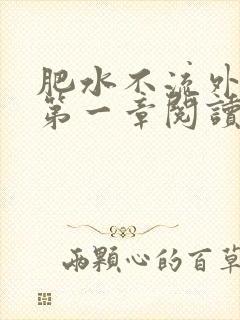 肥水不流外
第一章閱讀
兩顆心的百草